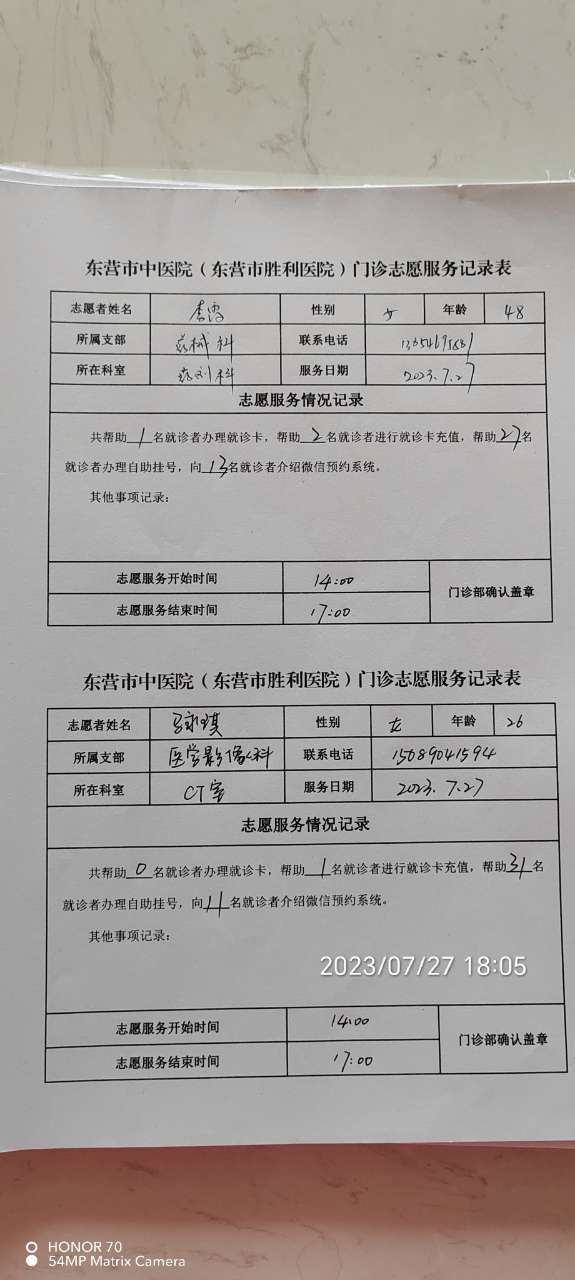 东营市中医院（东营市胜利医院）门诊志愿服务记录表
志愿者姓名 李 性别 女 年龄 48
所属支部 药械科 联系电话
所在科室 药剂科 服务日期 2023.7.27
志愿服务情况记录
共帮助1名就诊者办理就诊卡，帮助2名就诊者进行就诊卡充值，帮助27名
就诊者办理自助挂号，向13名就诊者介绍微信预约系统。
其他事项记录：
志愿服务开始时间 14:00
门诊部确认盖章
志愿服务结束时间 17:00
东营市中医院（东营市胜利医院）门诊志愿服务记录表
志愿者姓名 马永琪 性别 女 年龄 26
所属支部 医学影像科 联系电话 15689041594
所在科室 CT室 服务日期 2023.7.27
志愿服务情况记录
共帮助0名就诊者办理就诊卡，帮助1名就诊者进行就诊卡充值，帮助31名
就诊者办理自助挂号，向11名就诊者介绍微信预约系统。
其他事项记录：
2023/07/27 18:05
志愿服务开始时间 14:00
门诊部确认盖章
志愿服务结束时间 17:00
HONOR 70
54MP Matrix Camera